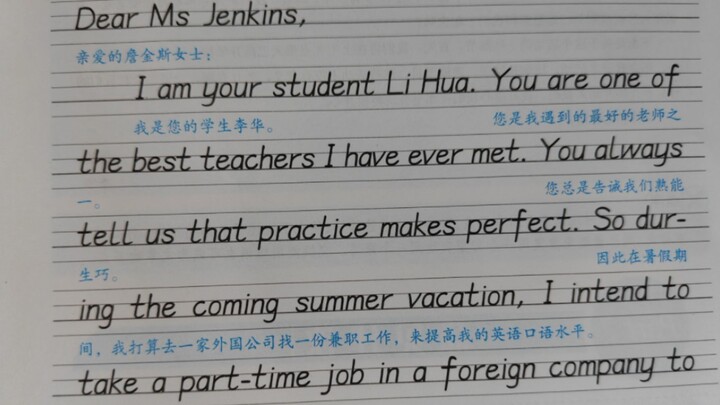 Dear Ms Jenkins,
亲爱的詹金斯女士：
I am your student Li Hua. You are one of
我是您的学生李华。 您是我遇到的最好的老师之
the best teachers I have ever met. You always
一。 您总是告诫我们熟能
tell us that practice makes perfect. So dur-
生巧。 因此在暑假期
ing the coming summer vacation, I intend to
间，我打算去一家外国公司找一份兼职工作，来提高我的英语口语水平。
take a part-time job in a foreign company to